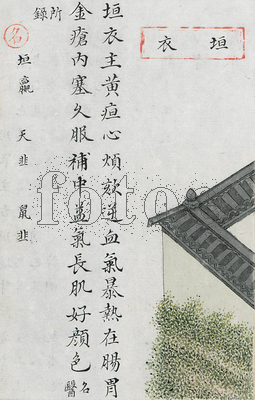 垣衣
垣衣主黃疸心煩欬逆血氣暴熱在腸胃
金瘡內塞久服補中益氣長肌好顏色名醫
所錄
名
垣嬴 天韭 鼠韭
fotoe